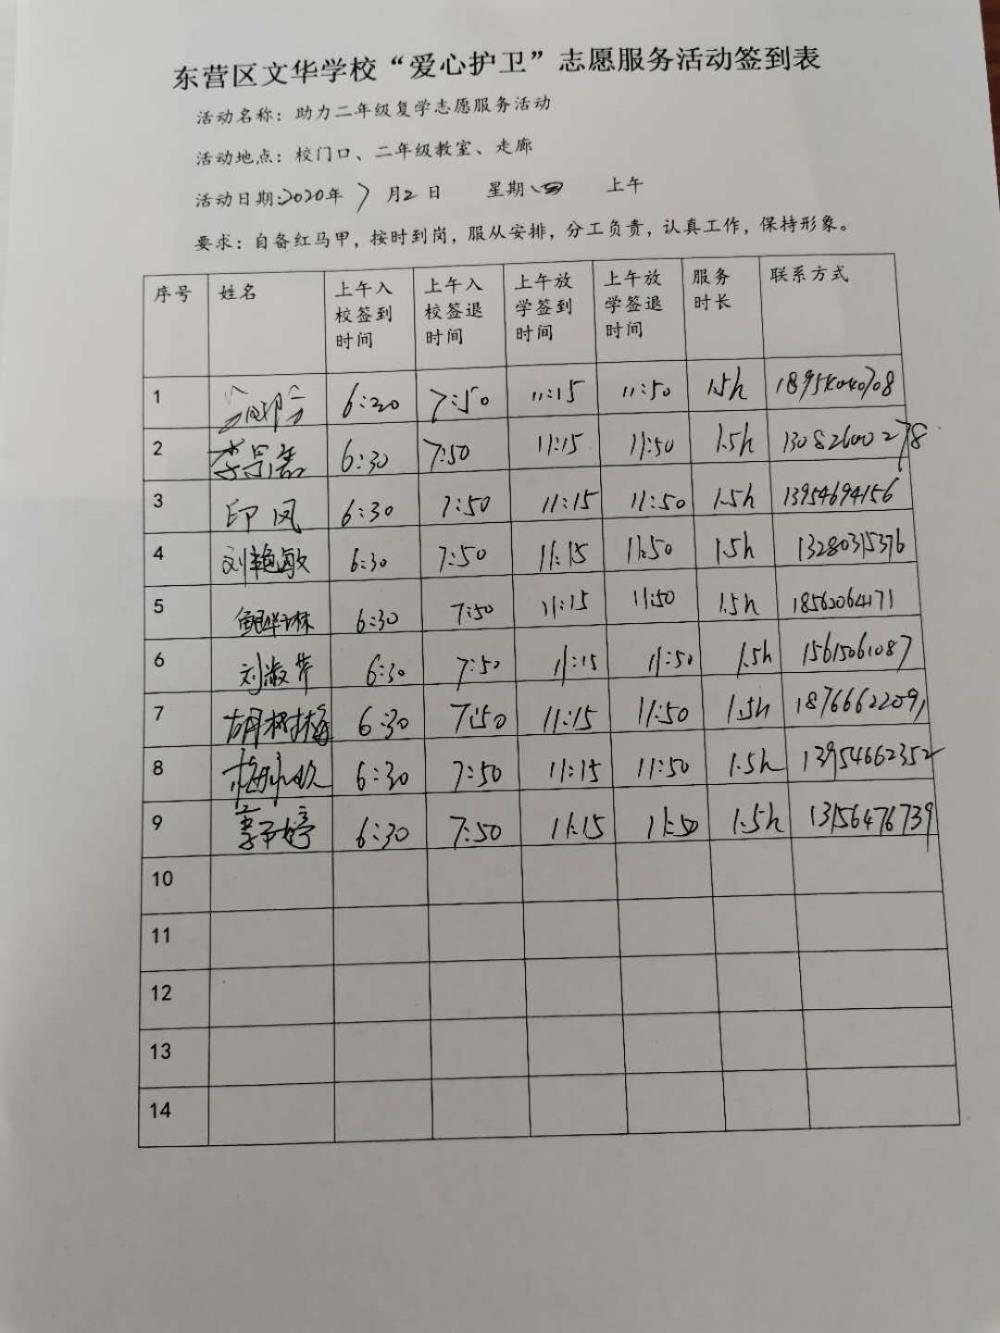 东营区文华学校“爱心护卫”志愿服务活动签到表
活动名称：助力二年级复学志愿服务活动
活动地点：校门口、二年级教室、走廊
活动日期：2020年 7 月2 日 星期四 上午
要求：自备红马甲，按时到岗，服从安排，分工负责，认真工作，保持形象。
序号 姓名 上午入校签到时间 上午入校签退时间 上午放学签到时间 上午放学签退时间 服务时长 联系方式
1 6:20 7:50 11:15 11:50 1.5h 18954040708
2 李景嘉 6:30 7:50 11:15 11:50 1.5h 13082600278
3 印凤 6:30 7:50 11:15 11:50 1.5h 13954694156
4 刘艳敏 6:30 7:50 11:15 11:50 1.5h 13280315376
5 6:30 7:50 11:15 11:50 1.5h 18562064171
6 刘淑芹 6:30 7:50 11:15 11:50 1.5h 15615061087
7 胡树梅 6:30 7:50 11:15 11:50 1.5h 18766622091
8 6:30 7:50 11:15 11:50 1.5h 13954662352
9 6:30 7:50 11:15 11:50 1.5h 13156476739
10
11
12
13
14